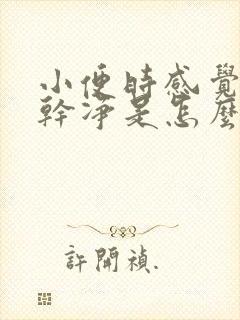 小便時感覺
幹凈是怎麼
許開禎.